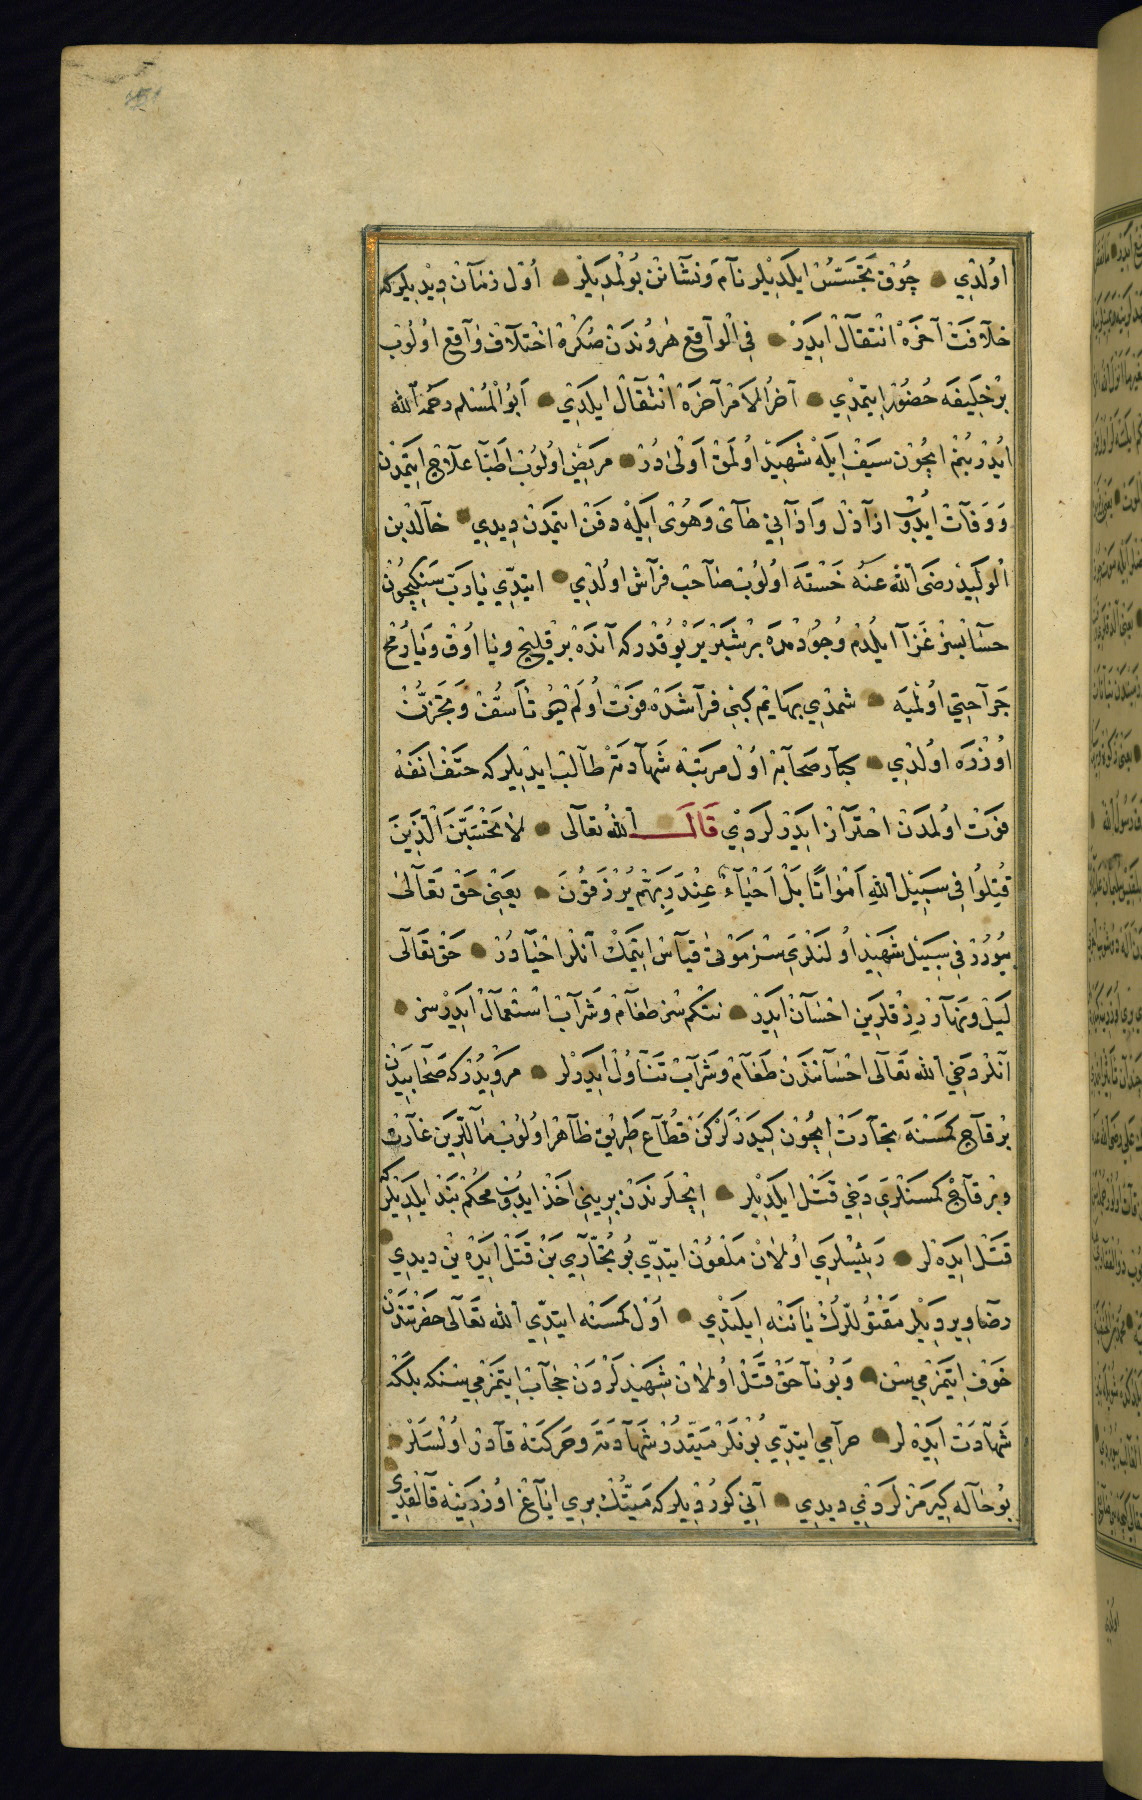 اولدي چوق تجسس ايلديلر نام و نشانن بولمديلر اول زمان ديديلر كه
خلافت آخره انتقال ايدر في الواقع هروندن صكره اختلاف واقع اولوب
بر خليفه حضور ايتمدي آخر الامر آخره انتقال ايلدي ابو المسلم رحمه الله
ايدر بنم ايچون سيف ايله شهيد اولمق اولى در مريض اولوب اطبا علاج ايتمدن
و وفات ايدوب اراذل و اداني هاي و هوى ايله دفن ايتمدن ديدي خالد بن
الوليد رضى الله عنه خسته اولوب صاحب فراش اولدي ايتدي يا رب سنكچون
حسابسز غزا ايلدم وجودمده بر شبر ير يوقدر كه آنده بر قليج ويا اوق ويا رمح
جراحتي اولميه شمدي بهايم كبي فراشده فوت اولم ديو تأسف و تحزن
اوزره اولدي كبار صحابه اول مرتبه شهادته طالب ايديلر كه حتف انفه
فوت اولمدن احتراز ايدرلردي قال الله تعالى لا تحسبن الذين
قتلوا في سبيل الله امواتا بل احياء عند ربهم يرزقون يعني حق تعالى
بيورر في سبيل شهيد اولنلري سز موتى قياس ايتمك آنلر احيادر حق تعالى
ليل و نهار رزقلرين احسان ايدر نتكم سز طعام و شراب استعمال ايدرسز
آنلر دخي الله تعالى احسانندن طعام و شراب تناول ايدرلر مرويدر كه صحابيدن
بر قاچ كمسنه تجارت ايچون كيدرلركن قطاع طريق ظاهر اولوب ماللرين غارت
و بر قاچ كمسنلري دخي قتل ايلديلر ايچلرندن بريني اخذ ايدوب محكم بند ايلديلر كه
قتل ايده لر رئيسلري اولان ملعون ايتدي بو بختاري بن قتل ايده ين ديدي
رضا ويرديلر مقتوللرك ياننه ايلتدي اول كمسنه ايتدي الله تعالى حضرتندن
خوف ايتمزميسن و بو ناحق قتل اولان شهيدلردن حجاب ايتمزميسنكه بلكه
شهادت ايده لر حرامي ايتدي بونلر ميتدر شهادته و حركته قادر اولسلر
بو حاله كيرمزلردي ديدي آني كورديلر كه ميتك بري اياغ اوزرينه قالقدي